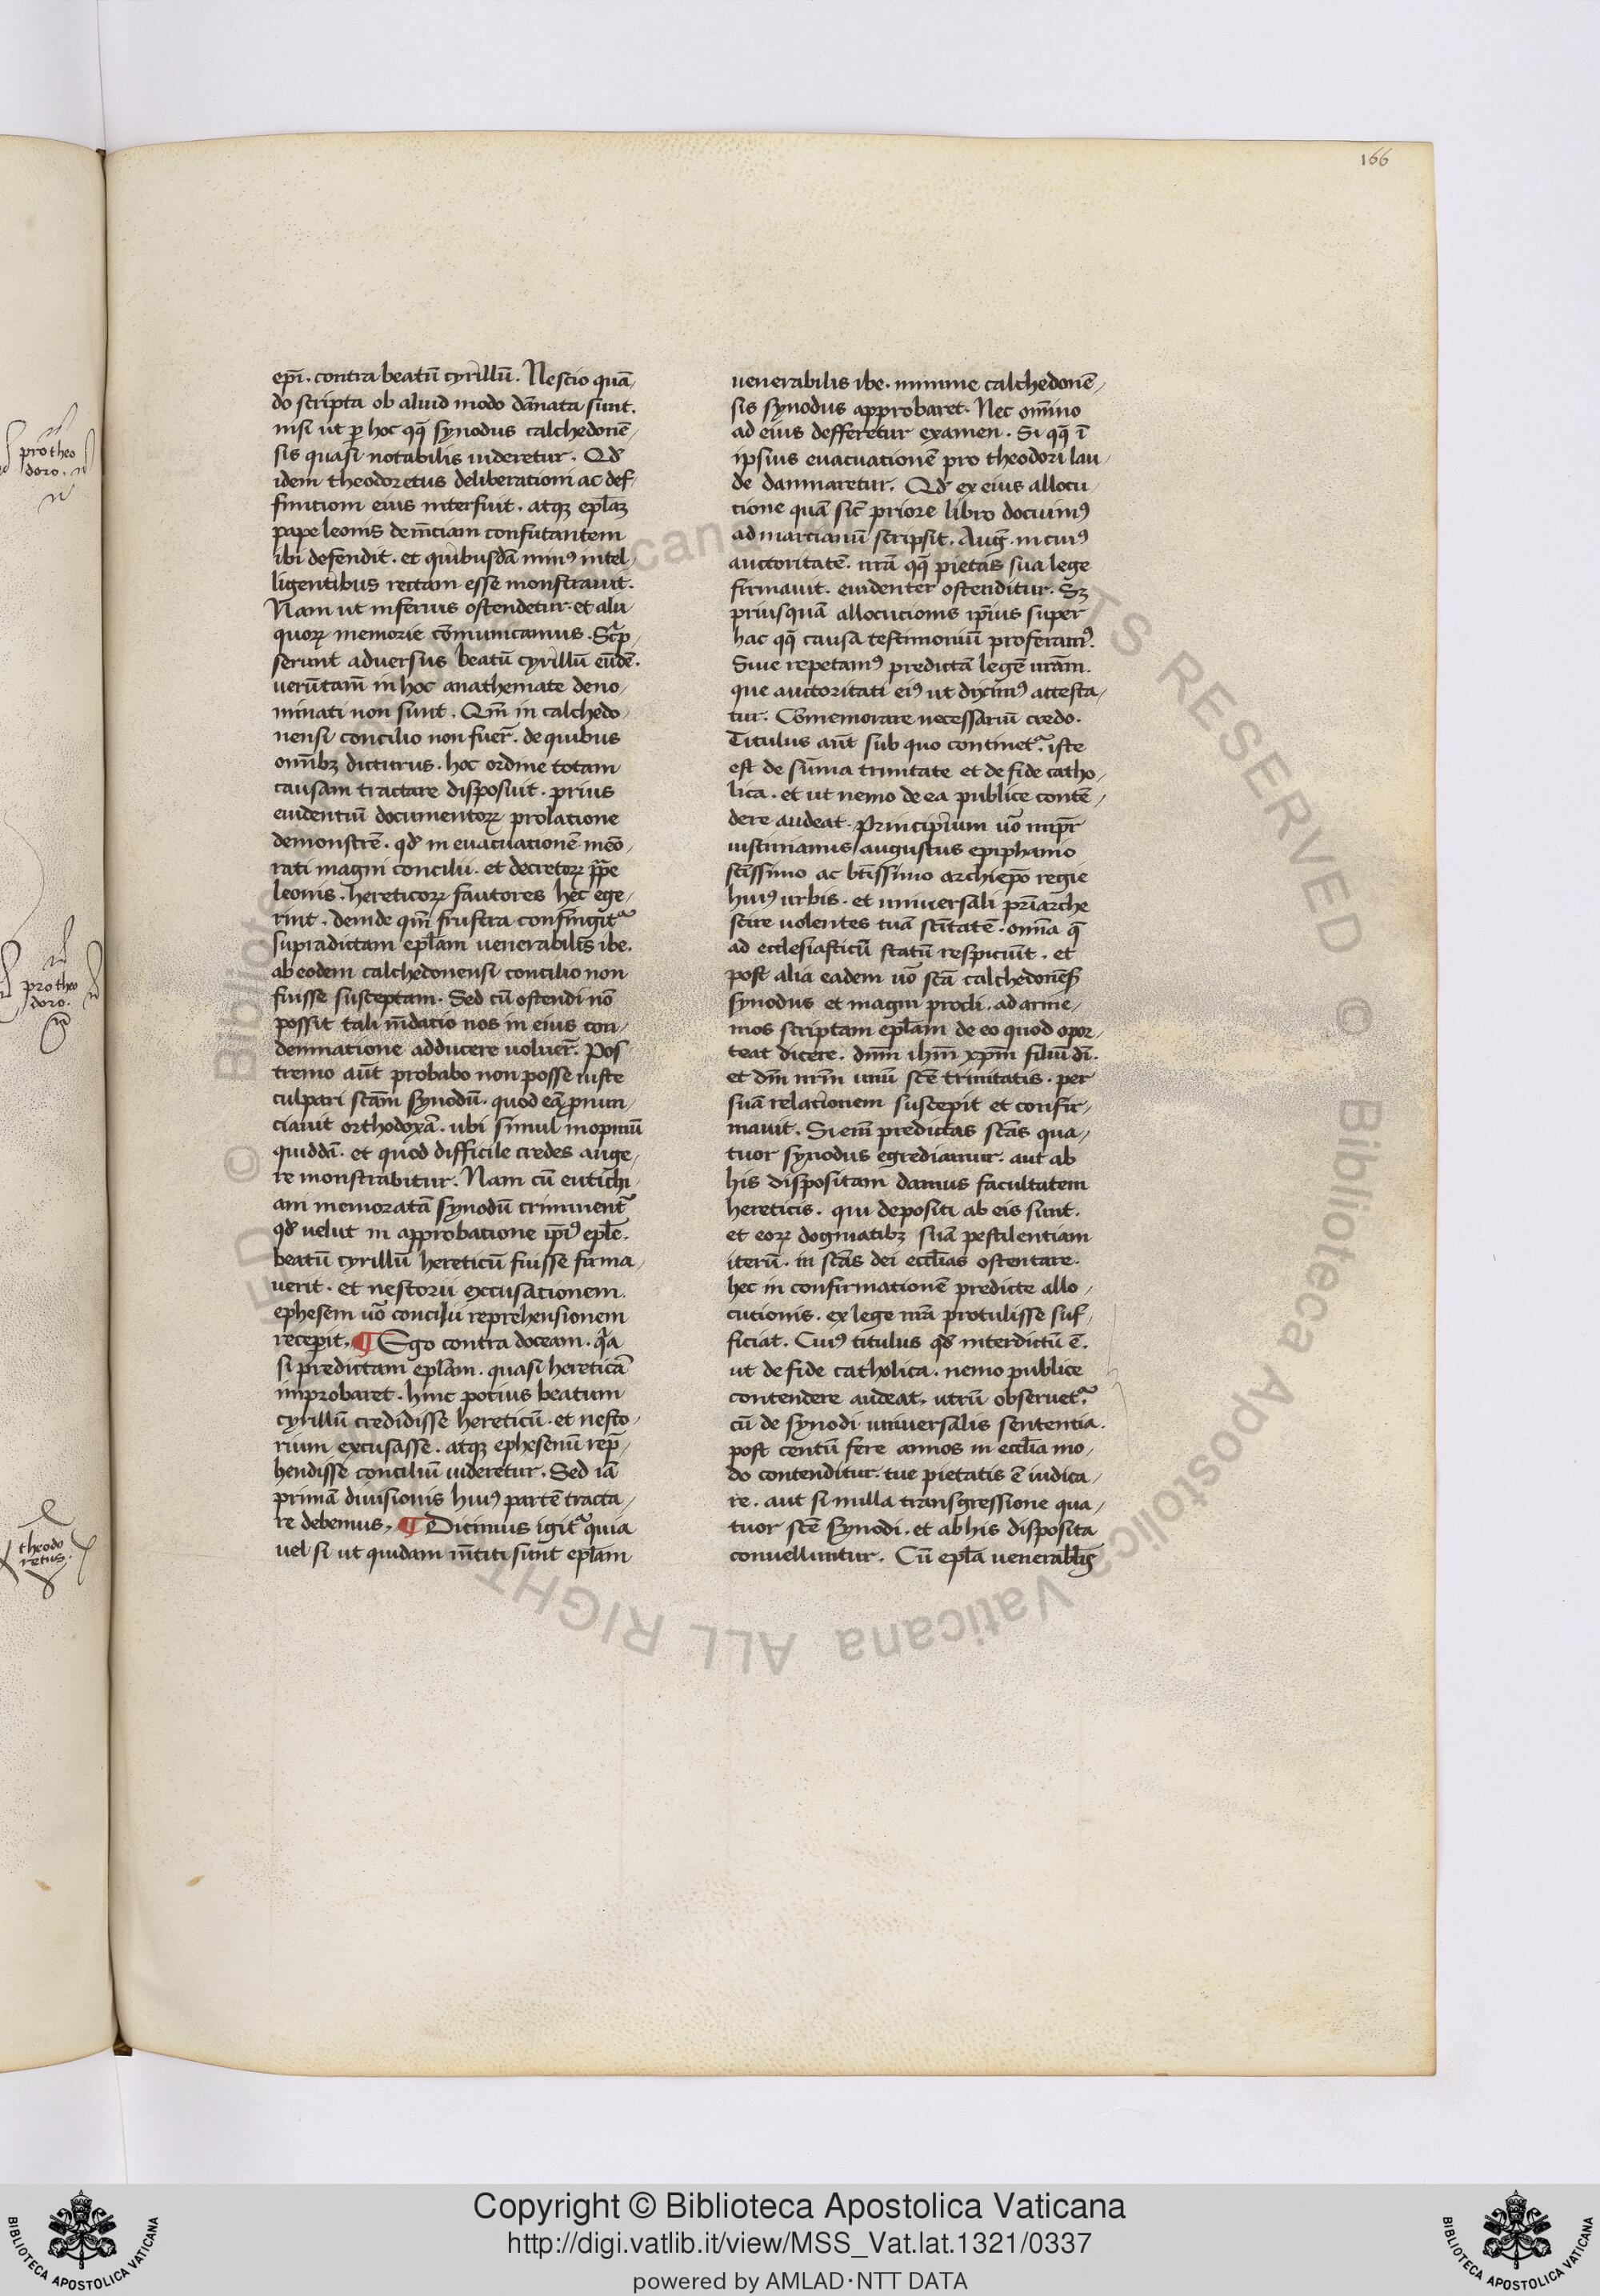 166
epī. contra beatū cyrillū. Nescio quā
do scripta ob aliud modo dānata sunt.
nisi ut ꝑ hoc qq̄ synodus calchedonē
sis quasi notabilis uideretur. Qd̄
idem theodoretus deliberationi ac def
finitioni eius interfuit. atqꝫ ep̄laꝫ
pape leonis dem̄ciam confutantem
ibi defendit. et quibusdā minꝰ intel
ligentibus rectam esse monstrauit.
Nam ut inferius ostendetur. et alii
quoꝝ memorie cōmunicamus. Scrip
serunt aduersus beatū cyrillū eūdē.
uerūtam̄ in hoc anathemate deno
minati non sunt. Qm̄ in calchedo
nensi concilio non fuer̄. de quibus
om̄ibꝫ dicturus. hoc ordine totam
causam tractare disposuit. prius
euidentiū documentoꝝ prolatione
demonstrē. qd̄ in euacuationē memo
rati magni concilii. et decretoꝝ pape
leonis. hereticoꝝ fautores hec ege
rint. deinde qm̄ frustra confingitᷣ
supradictam ep̄lam uenerabilis ibe.
ab eodem calchedonensi concilio non
fuisse susceptam. Sed cū ostendi nō
possit tali m̄dacio nos in eius con
demnatione adducere uoluer̄. Pos
tremo aūt probabo non posse iuste
culpari scām synodū. quod eā ꝓnun
ciauit orthodoxā. ubi simul inopinū
quiddā. et quod difficile credes auge
re monstrabitur. Nam cū eutichi
am memoratā synodū criminentᷣ
qd̄ uelut in approbatione ip̄iꝰ ep̄le.
beatū cyrillū hereticū fuisse firma
uerit. et nestorii excusationem.
ephesem uō concilii reprehensionem
recepit. ¶ Ego contra doceam. qia
si predictam ep̄lam. quasi hereticā
improbaret. hinc potius beatum
cyrillū credidisse hereticū. et nesto
rium excusasse. atqꝫ ephesenū rep̄
hendisse conciliū uideretur. Sed iā
primā diuisionis huiꝰ partē tracta
re debemus. ¶ Dicimus igitᷣ quia
uel si ut quidam m̄titi sunt ep̄lam
uenerabilis ibe. minime calchedonē
sis synodus approbaret. Nec om̄ino
ad eius defferetur examen. Si qq̄ ī
ipsius euacuationē pro theodori lau
de damnaretur. Qd̄ ex eius allocu
tione quā sic̄ priore libro docuimꝰ
ad marcianū scripsit. Auḡ. in cuiꝰ
auctoritatē. nrā qq̄ pietas sua lege
firmauit. euidenter ostenditur. Sꝫ
priusquā allocucionis ip̄ius super
hac qq̄ causa testimoniū proferamꝰ.
Siue repetamꝰ predictā legē uram.
que auctoritati eiꝰ ut diximꝰ attesta
tur. Cōmemorare necessariū credo.
Titulus aūt sub quo continetᷣ. iste
est de sūma trinitate et de fide catho
lica. et ut nemo de ea publice contē
dere audeat. Principium uō imp̄r
iustinianus augustus epiphanio
sc̄issimo ac bt̄issimo archiep̄o regie
huiꝰ urbis. et uniuersali pr̄iarche
scire uolentes tuā sc̄itatē. om̄ia q̄
ad ecclesiasticū statū respiciūt. et
post alia eadem uō sc̄a calchedonēs
synodus et magni procli. ad arme
nios scriptam ep̄lam de eo quod opor
teat dicere. dn̄m ihm̄ xp̄m filiū dī.
et dm̄ nr̄m unū sc̄e trinitatis. per
suā relationem suscepit et confir
mauit. Si em̄ predictas sc̄as qua
tuor synodus egrediamur. aut ab
his dispositam damus facultatem
hereticis. qui depositi ab eis sunt.
et eoꝝ dogmatibꝫ suā pestilentiam
iterū. in sc̄as dei ecc̄lias ostentare.
hec in confirmationē predicte allo
cutionis. ex lege nrā protulisse suf
ficiat. Cuiꝰ titulus qd̄ interdictū ē.
ut de fide catholica. nemo publice
contendere audeat. utrū obseruetᷣ.
cū de synodi uniuersalis sententia.
post centū fere annos in ecc̄lia mo
do contenditur. tue pietatis ē iudica
re. aut si nulla transgressione qua
tuor sc̄e synodi. et ab his disposita
conuelluntur. Cū ep̄la uenerabilis
pro theo
doro.
pro theo
doro.
theodo
retus.
Copyright © Biblioteca Apostolica Vaticana
http://digi.vatlib.it/view/MSS_Vat.lat.1321/0337
powered by AMLAD·NTT DATA
BIBLIOTECA APOSTOLICA VATICANA
BIBLIOTECA APOSTOLICA VATICANA